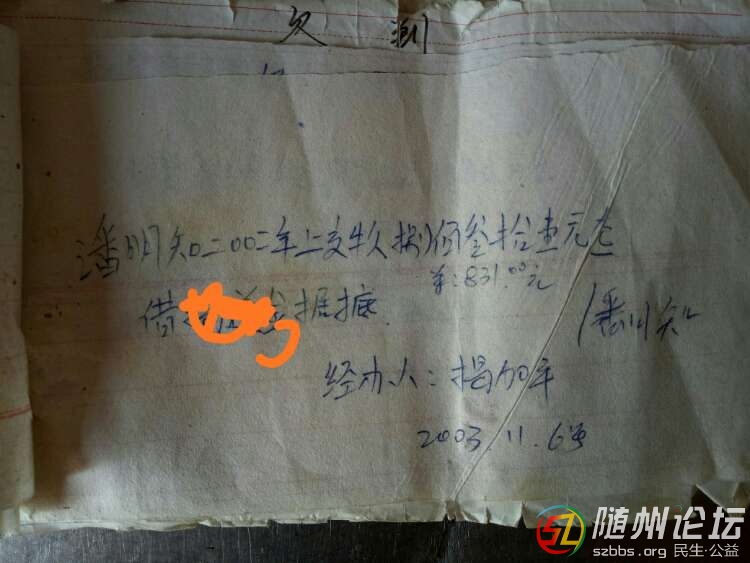 欠
潘明知二00二年上交欠捌佰叁拾壹元正
¥:831.00元
借 金据底
潘明知
经办人:揭
2003.11.6号
随州论坛
szbbs.org 民生·公益